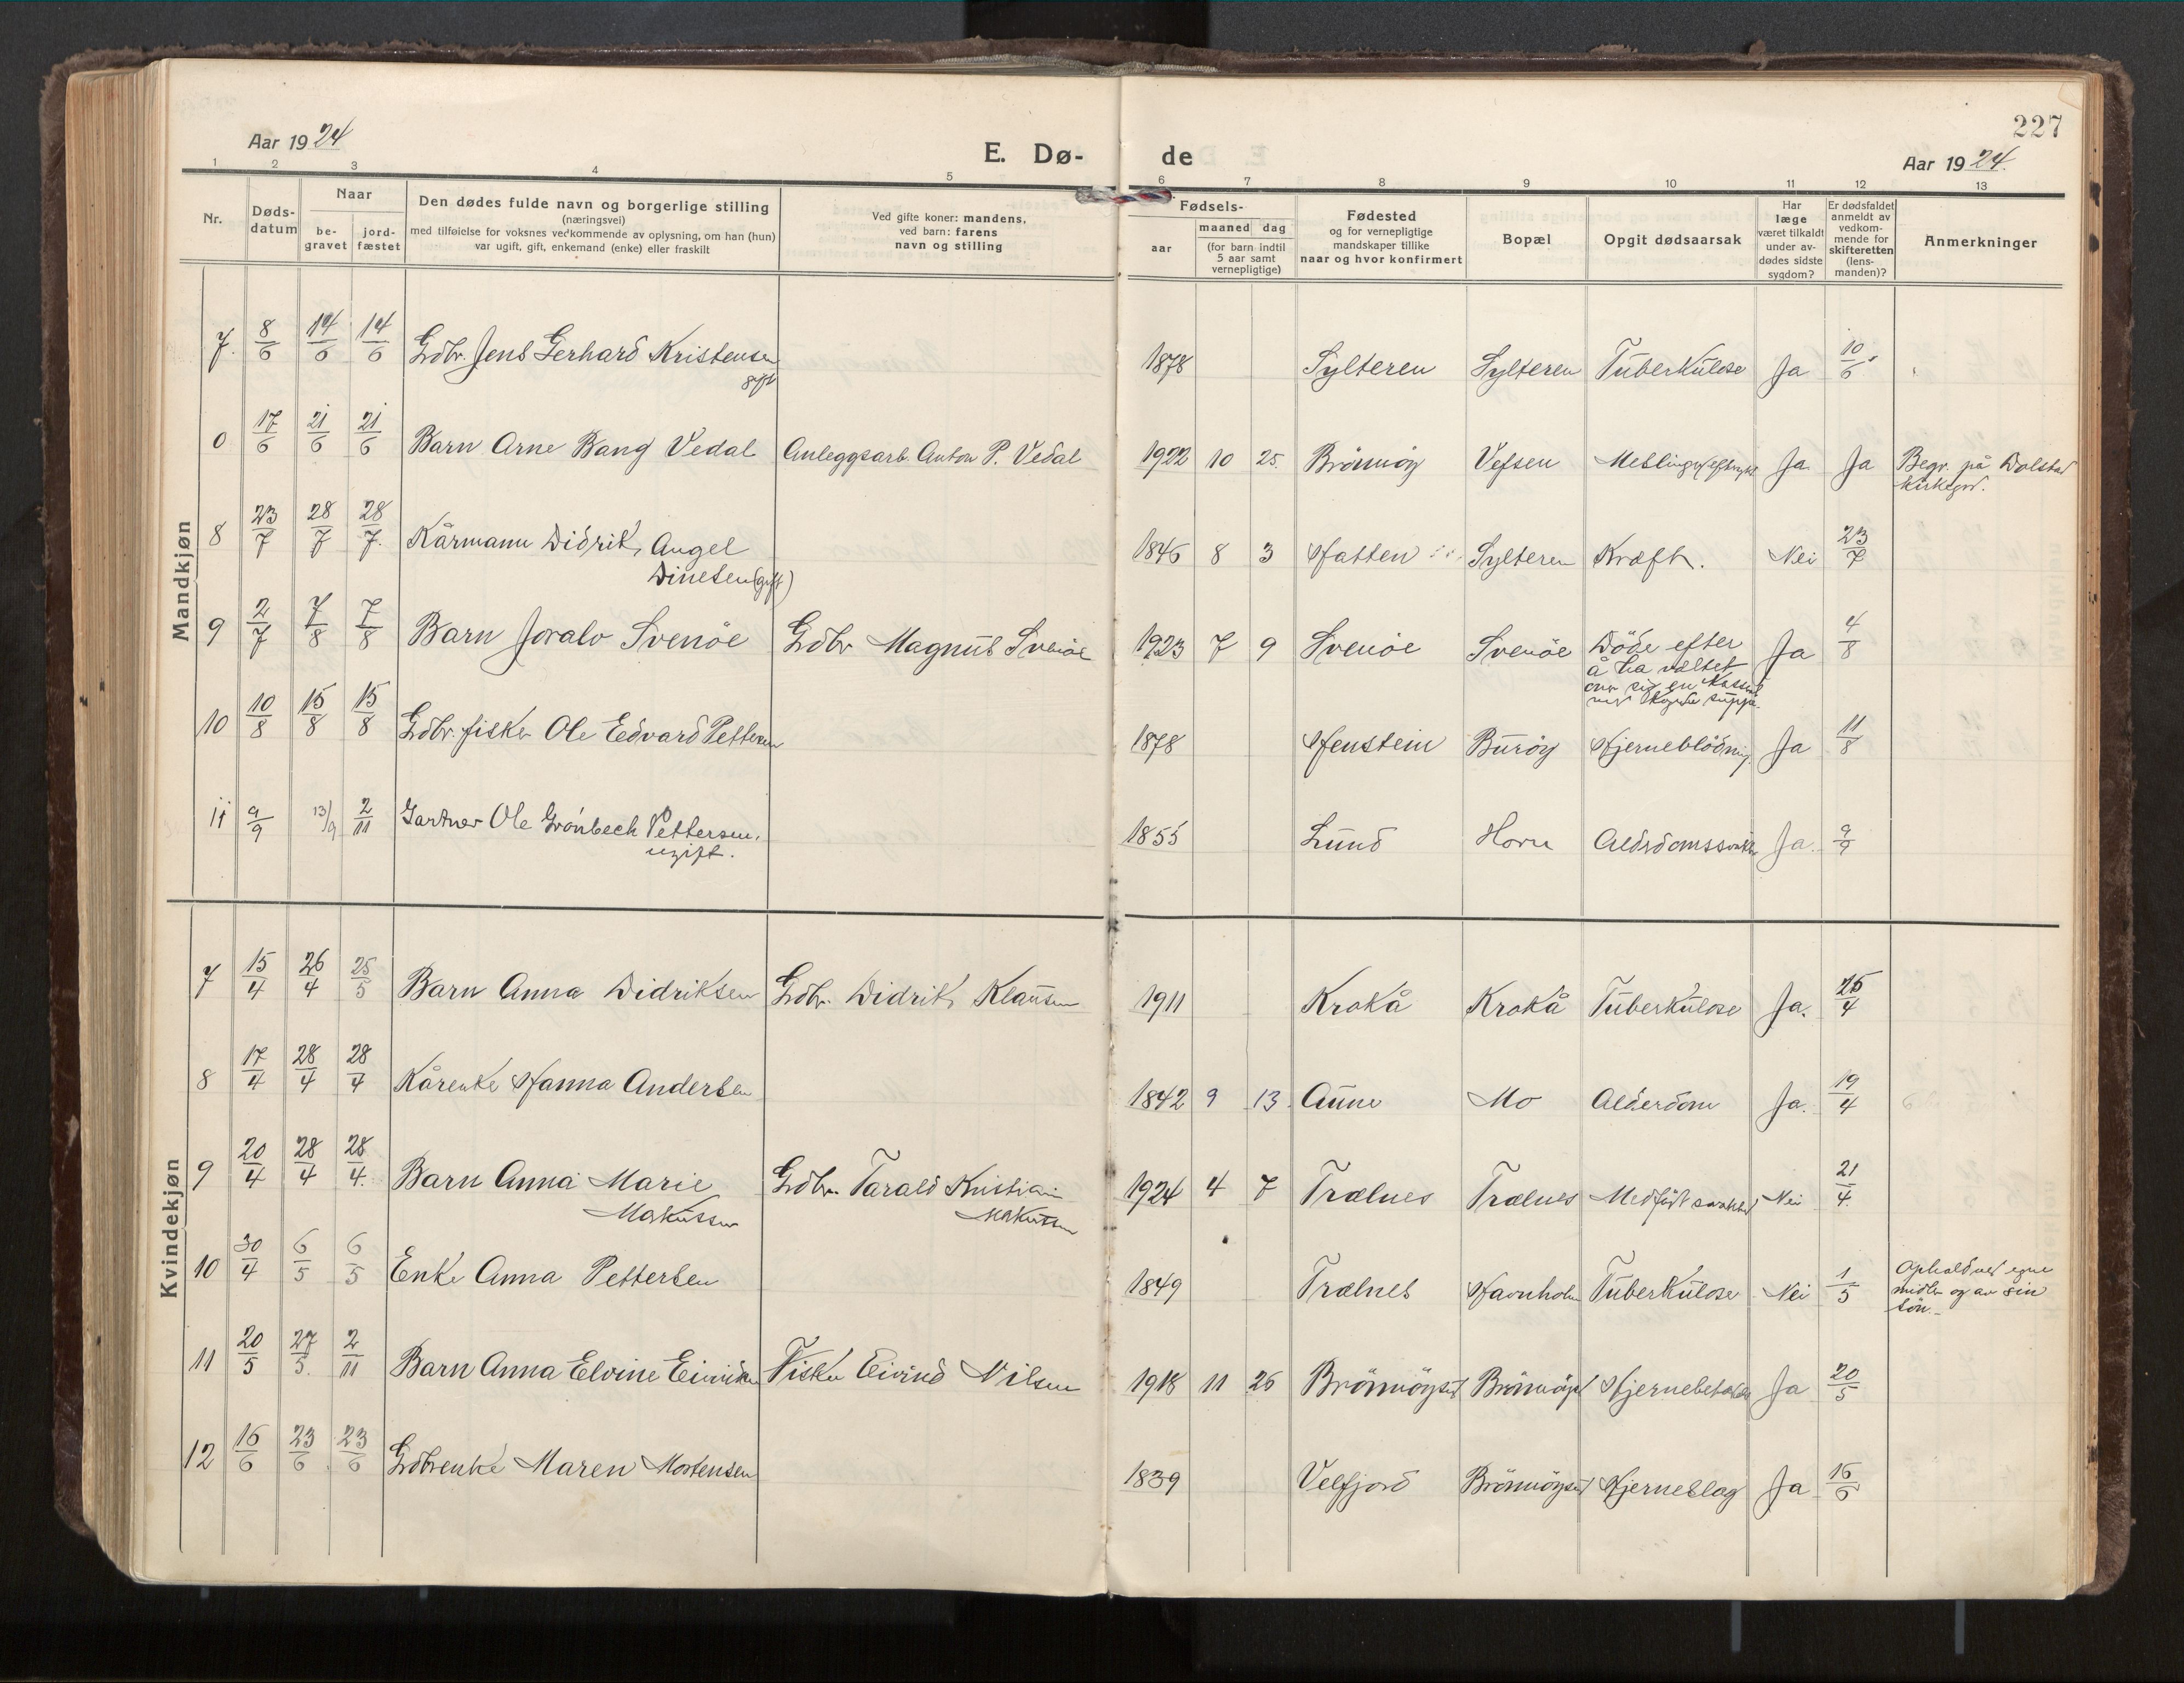 227
Aar 1924
E. Dø-
de
Aar 1924.
1 2 3 4 5 6 7 8 9 10 11 12 13
Nr.
Døds-
datum
Naar
be-
gravet
jord-
fæstet
Den dødes fulde navn og borgerlige stilling
(næringsvei)
med tilføielse for voksnes vedkommende av oplysning, om han (hun)
var ugift, gift, enkemand (enke) eller fraskilt
Ved gifte koner: mandens,
ved barn: farens
navn og stilling
Fødsels-
aar
maaned dag
(for barn indtil
5 aar samt
vernepligtige)
Fødested
og for vernepligtige
mandskaper tillike
naar og hvor konfirmert
Bopæl
Opgit dødsaarsak
Har
læge
været tilkaldt
under av-
dødes sidste
sygdom?
Er dødsfaldet
anmeldt av
vedkom-
mende for
skifteretten
(lens-
manden)?
Anmerkninger
Mandkjøn
7. 8/6 14/6 14/6 Gdbr. Jens Gerhard Kristensen 1878 Sylteren Sylteren Tuberkulose Ja 10/6
gift
0 17/6 21/6 21/6 Barn Arne Bang Vedal Anleggsarb. Anton P. Vedal 1922 10 25. Brönnöy Vefsen Ja. Ja Begr. på Dolstad
Kirkegrd.
8 23/7 28/7 28/7. Kårmann Didrik Angel 1846 8 3 Hatten Sylteren Kræft. Nei 23/7
Dinesen (gift)
9 2/7 7/8 7/8 Barn Joralv Svenöe Gdbr Magnus Svenöe 1923 7 9 Svenöe Svenöe Döde efter Ja 4/8
å ha væltet
over sig en Kasserol
med kogende suppe.
10 10/8 15/8 15/8 Gdbr. fisker Ole Edvard Pettersen 1878 Henstein Buröy Hjerneblödning Ja 11/8
11 9/9 13/9 2/11 Gartner Ole Grönbech Pettersen. 1855 Lund Horn Alderdomssvakhet Ja. 9/9
ugift.
Kvindekjøn
7 15/4 26/4 25/5 Barn Anna Didriksen Gdbr. Didrik Klausen 1911 Krokå Krokå Tuberkulose Ja. 25/4
8 17/4 28/4 28/4 Kårenke Hanna Andersen 1842 9 13. Aune Mo Alderdom Ja. 19/4
9 20/4 28/4 28/4. Barn Anna Marie Gdbr. Tarald Kristian 1924 4 7 Trælnes Trælnes Medfödt svakhed Nei 21/4.
Markussen Markussen
10 30/4 6/5 6/5 Enke Anna Pettersen 1849 Trælnes Havnholm Tuberkulose Nei 1/5 Ophold ved egne
midler og av sin
sön.
11 20/5 27/5. 2/11 Barn Anna Elvine Eivindsen Fisker Eivind Nilsen 1918 11 26 Brönnöysund Brönnöysund Hjernebetændelse Ja 20/5
12 16/6 23/6 23/6 Gdbrenke Maren Mortensen 1839 Velfjord Brönnöysund Hjerneslag Ja 16/6